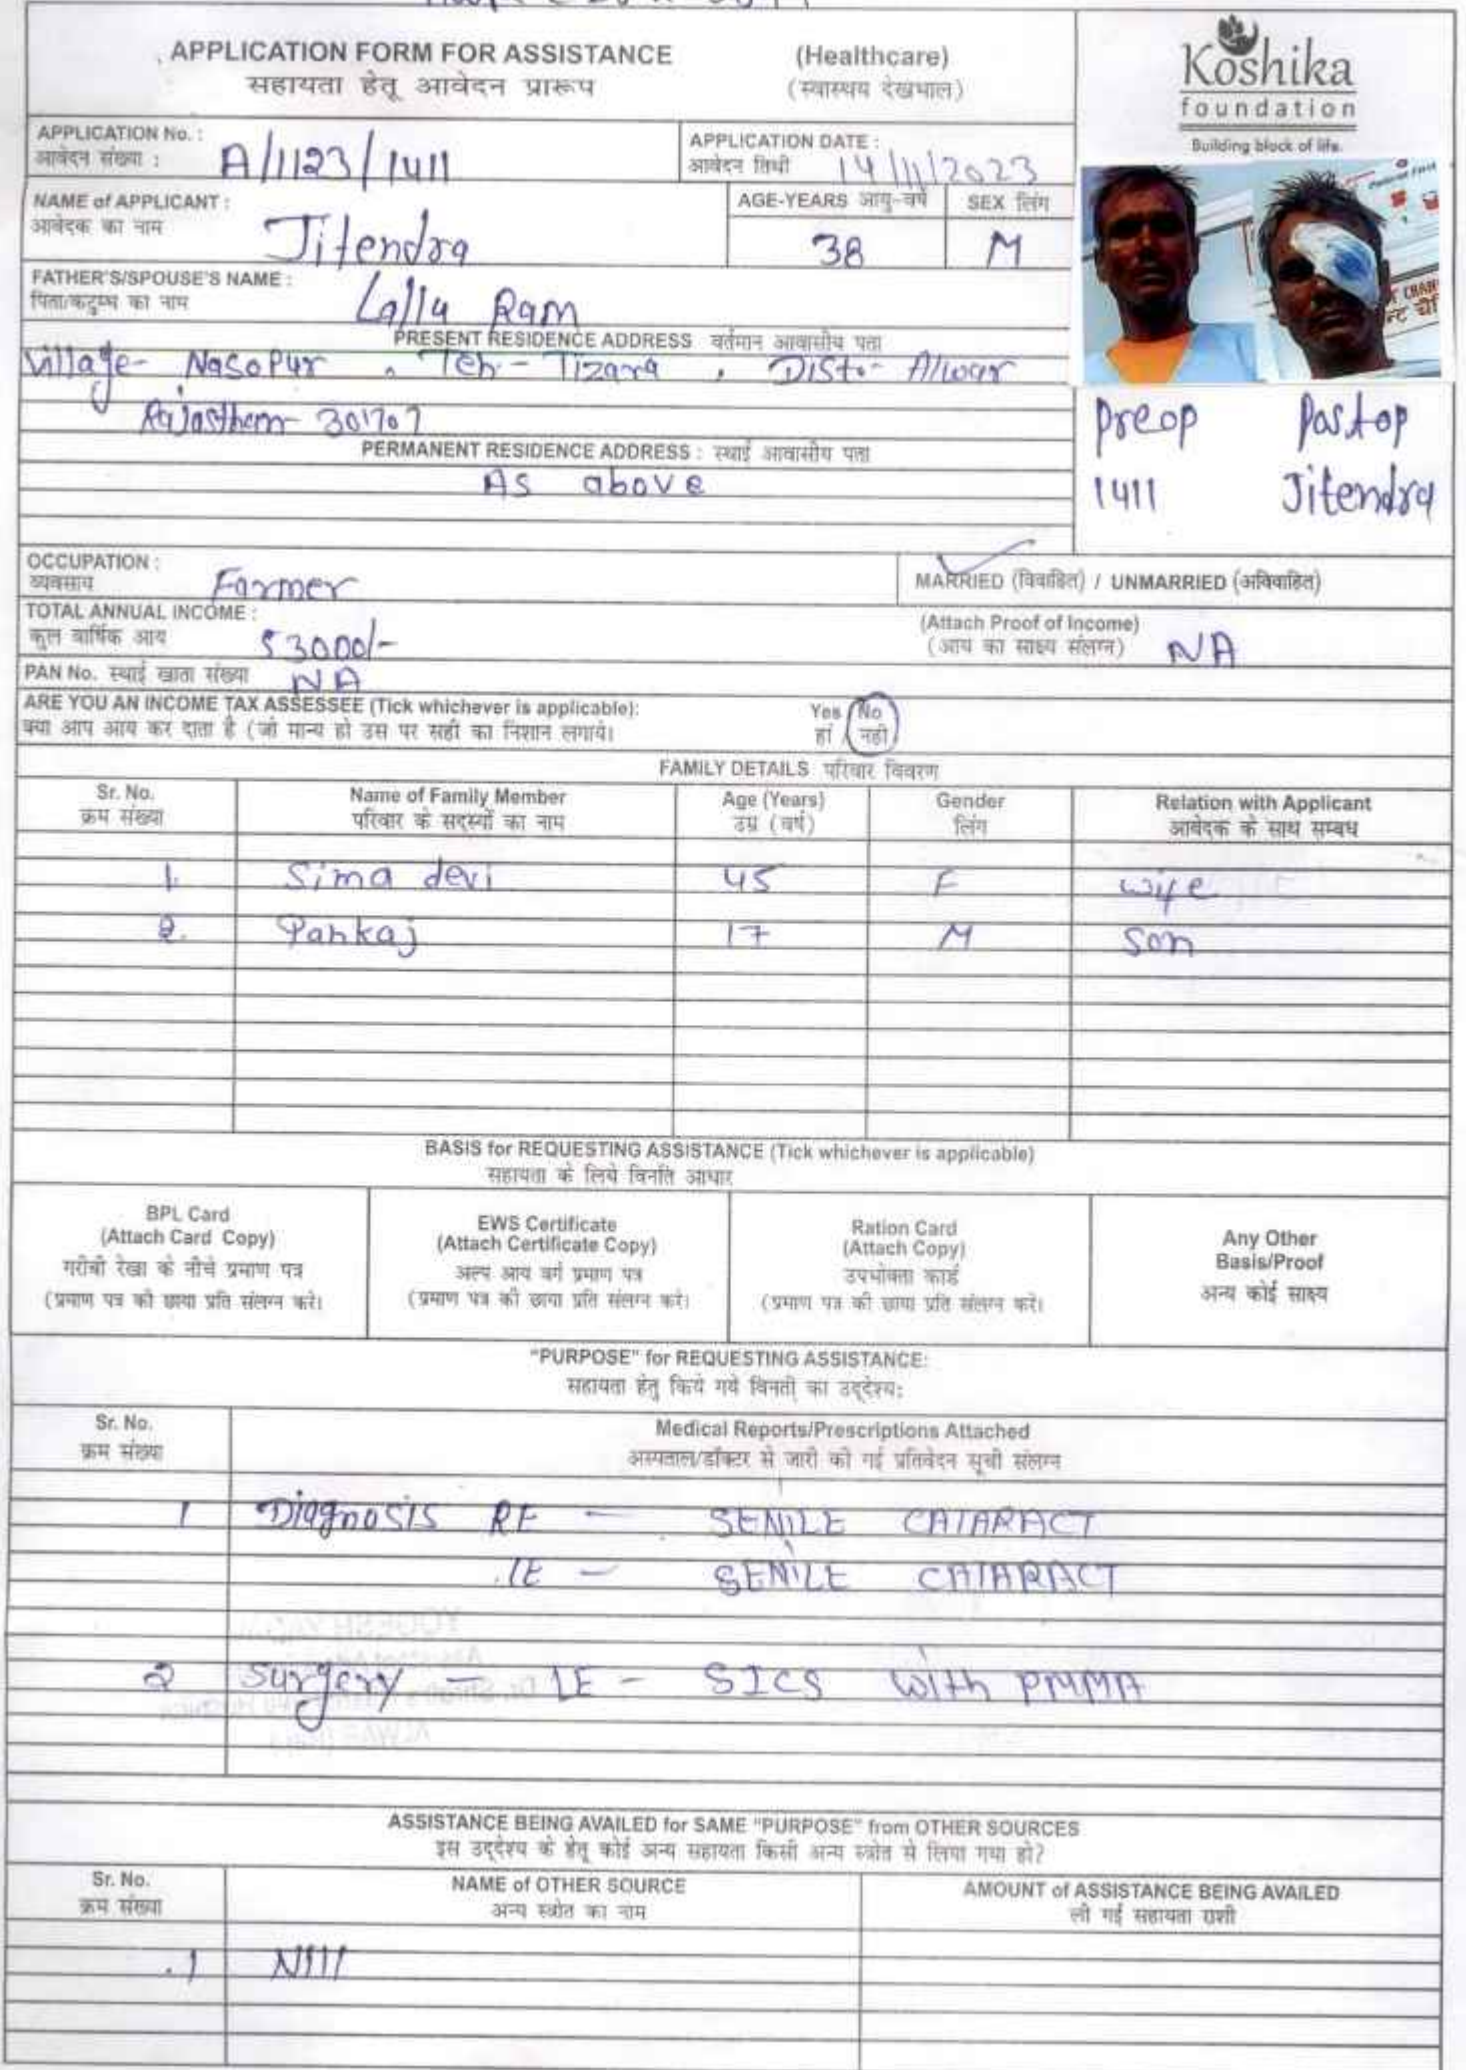 APPLICATION FORM FOR ASSISTANCE (Healthcare)
सहायता हेतू आवेदन प्रारूप (स्वास्थय देखभाल)
Koshika
foundation
Building block of life.
APPLICATION No. :
आवेदन संख्या : A/1123/1411
APPLICATION DATE :
आवेदन तिथी 14/11/2023
NAME of APPLICANT :
आवेदक का नाम Jitendra
AGE-YEARS आयु-वर्ष SEX लिंग
38 M
FATHER'S/SPOUSE'S NAME :
पिता/कटुम्ब का नाम Lallu Ram
PRESENT RESIDENCE ADDRESS वर्तमान आवासीय पता
Village- Nasopur , Teh- Tizara , Dist.- Alwar
Rajasthan- 301707
PERMANENT RESIDENCE ADDRESS : स्थाई आवासीय पता
As above
Preop Postop
1411 Jitendra
OCCUPATION :
व्यवसाय Farmer
MARRIED (विवाहित) / UNMARRIED (अविवाहित)
TOTAL ANNUAL INCOME :
कुल वार्षिक आय 53000/-
(Attach Proof of Income)
(आय का साक्ष्य संलग्न) NA
PAN No. स्थाई खाता संख्या NA
ARE YOU AN INCOME TAX ASSESSEE (Tick whichever is applicable): Yes / No
क्या आप आय कर दाता है (जो मान्य हो उस पर सही का निशान लगाये। हां / नही
FAMILY DETAILS परिवार विवरण
Sr. No. Name of Family Member Age (Years) Gender Relation with Applicant
क्रम संख्या परिवार के सदस्यों का नाम उम्र (वर्ष) लिंग आवेदक के साथ सम्बध
1. Sima devi 45 F wife
2. Pankaj 17 M Son
BASIS for REQUESTING ASSISTANCE (Tick whichever is applicable)
सहायता के लिये विनति आधार
BPL Card
(Attach Card Copy)
गरीबी रेखा के नीचे प्रमाण पत्र
(प्रमाण पत्र की छाया प्रति संलग्न करे।
EWS Certificate
(Attach Certificate Copy)
अल्प आय वर्ग प्रमाण पत्र
(प्रमाण पत्र की छाया प्रति संलग्न करे।
Ration Card
(Attach Copy)
उपभोक्ता कार्ड
(प्रमाण पत्र की छाया प्रति संलग्न करे।
Any Other
Basis/Proof
अन्य कोई साक्ष्य
"PURPOSE" for REQUESTING ASSISTANCE:
सहायता हेतु किये गये विनती का उद्देश्य:
Sr. No. Medical Reports/Prescriptions Attached
क्रम संख्या अस्पताल/डॉक्टर से जारी की गई प्रतिवेदन सूची संलग्न
1 Diagnosis RE - SENILE CATARACT
LE - SENILE CATARACT
2 Surgery - LE - SICS with PMMA
ASSISTANCE BEING AVAILED for SAME "PURPOSE" from OTHER SOURCES
इस उद्देश्य के हेतू कोई अन्य सहायता किसी अन्य स्त्रोत से लिया गया हो?
Sr. No. NAME of OTHER SOURCE AMOUNT of ASSISTANCE BEING AVAILED
क्रम संख्या अन्य स्त्रोत का नाम ली गई सहायता राशी
.1 Nill